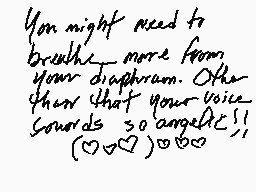 You might need to
breathe more from
your diaphram. Other
than that your voice
sounds so angelic!!
(♡ᴗ♡)♡♡♡